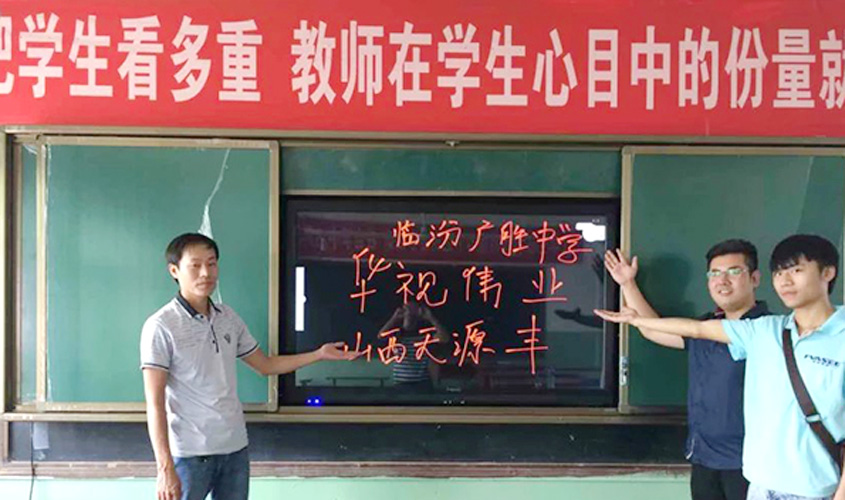 把学生看多重 教师在学生心目中的份量就
临汾广胜中学
华视伟业
山西天源丰